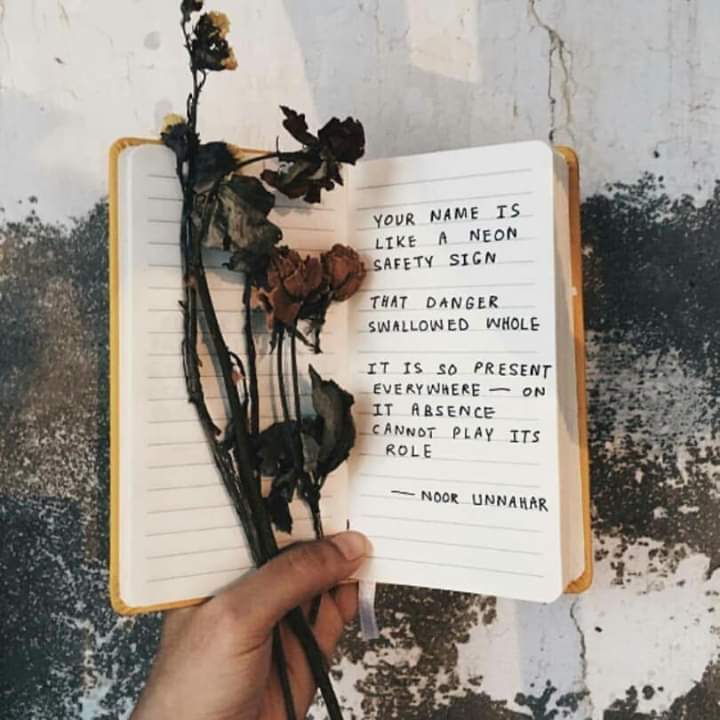 YOUR NAME IS
LIKE A NEON
SAFETY SIGN
THAT DANGER
SWALLOWED WHOLE
IT IS SO PRESENT
EVERYWHERE — ON
IT ABSENCE
CANNOT PLAY ITS
ROLE
— NOOR UNNAHAR